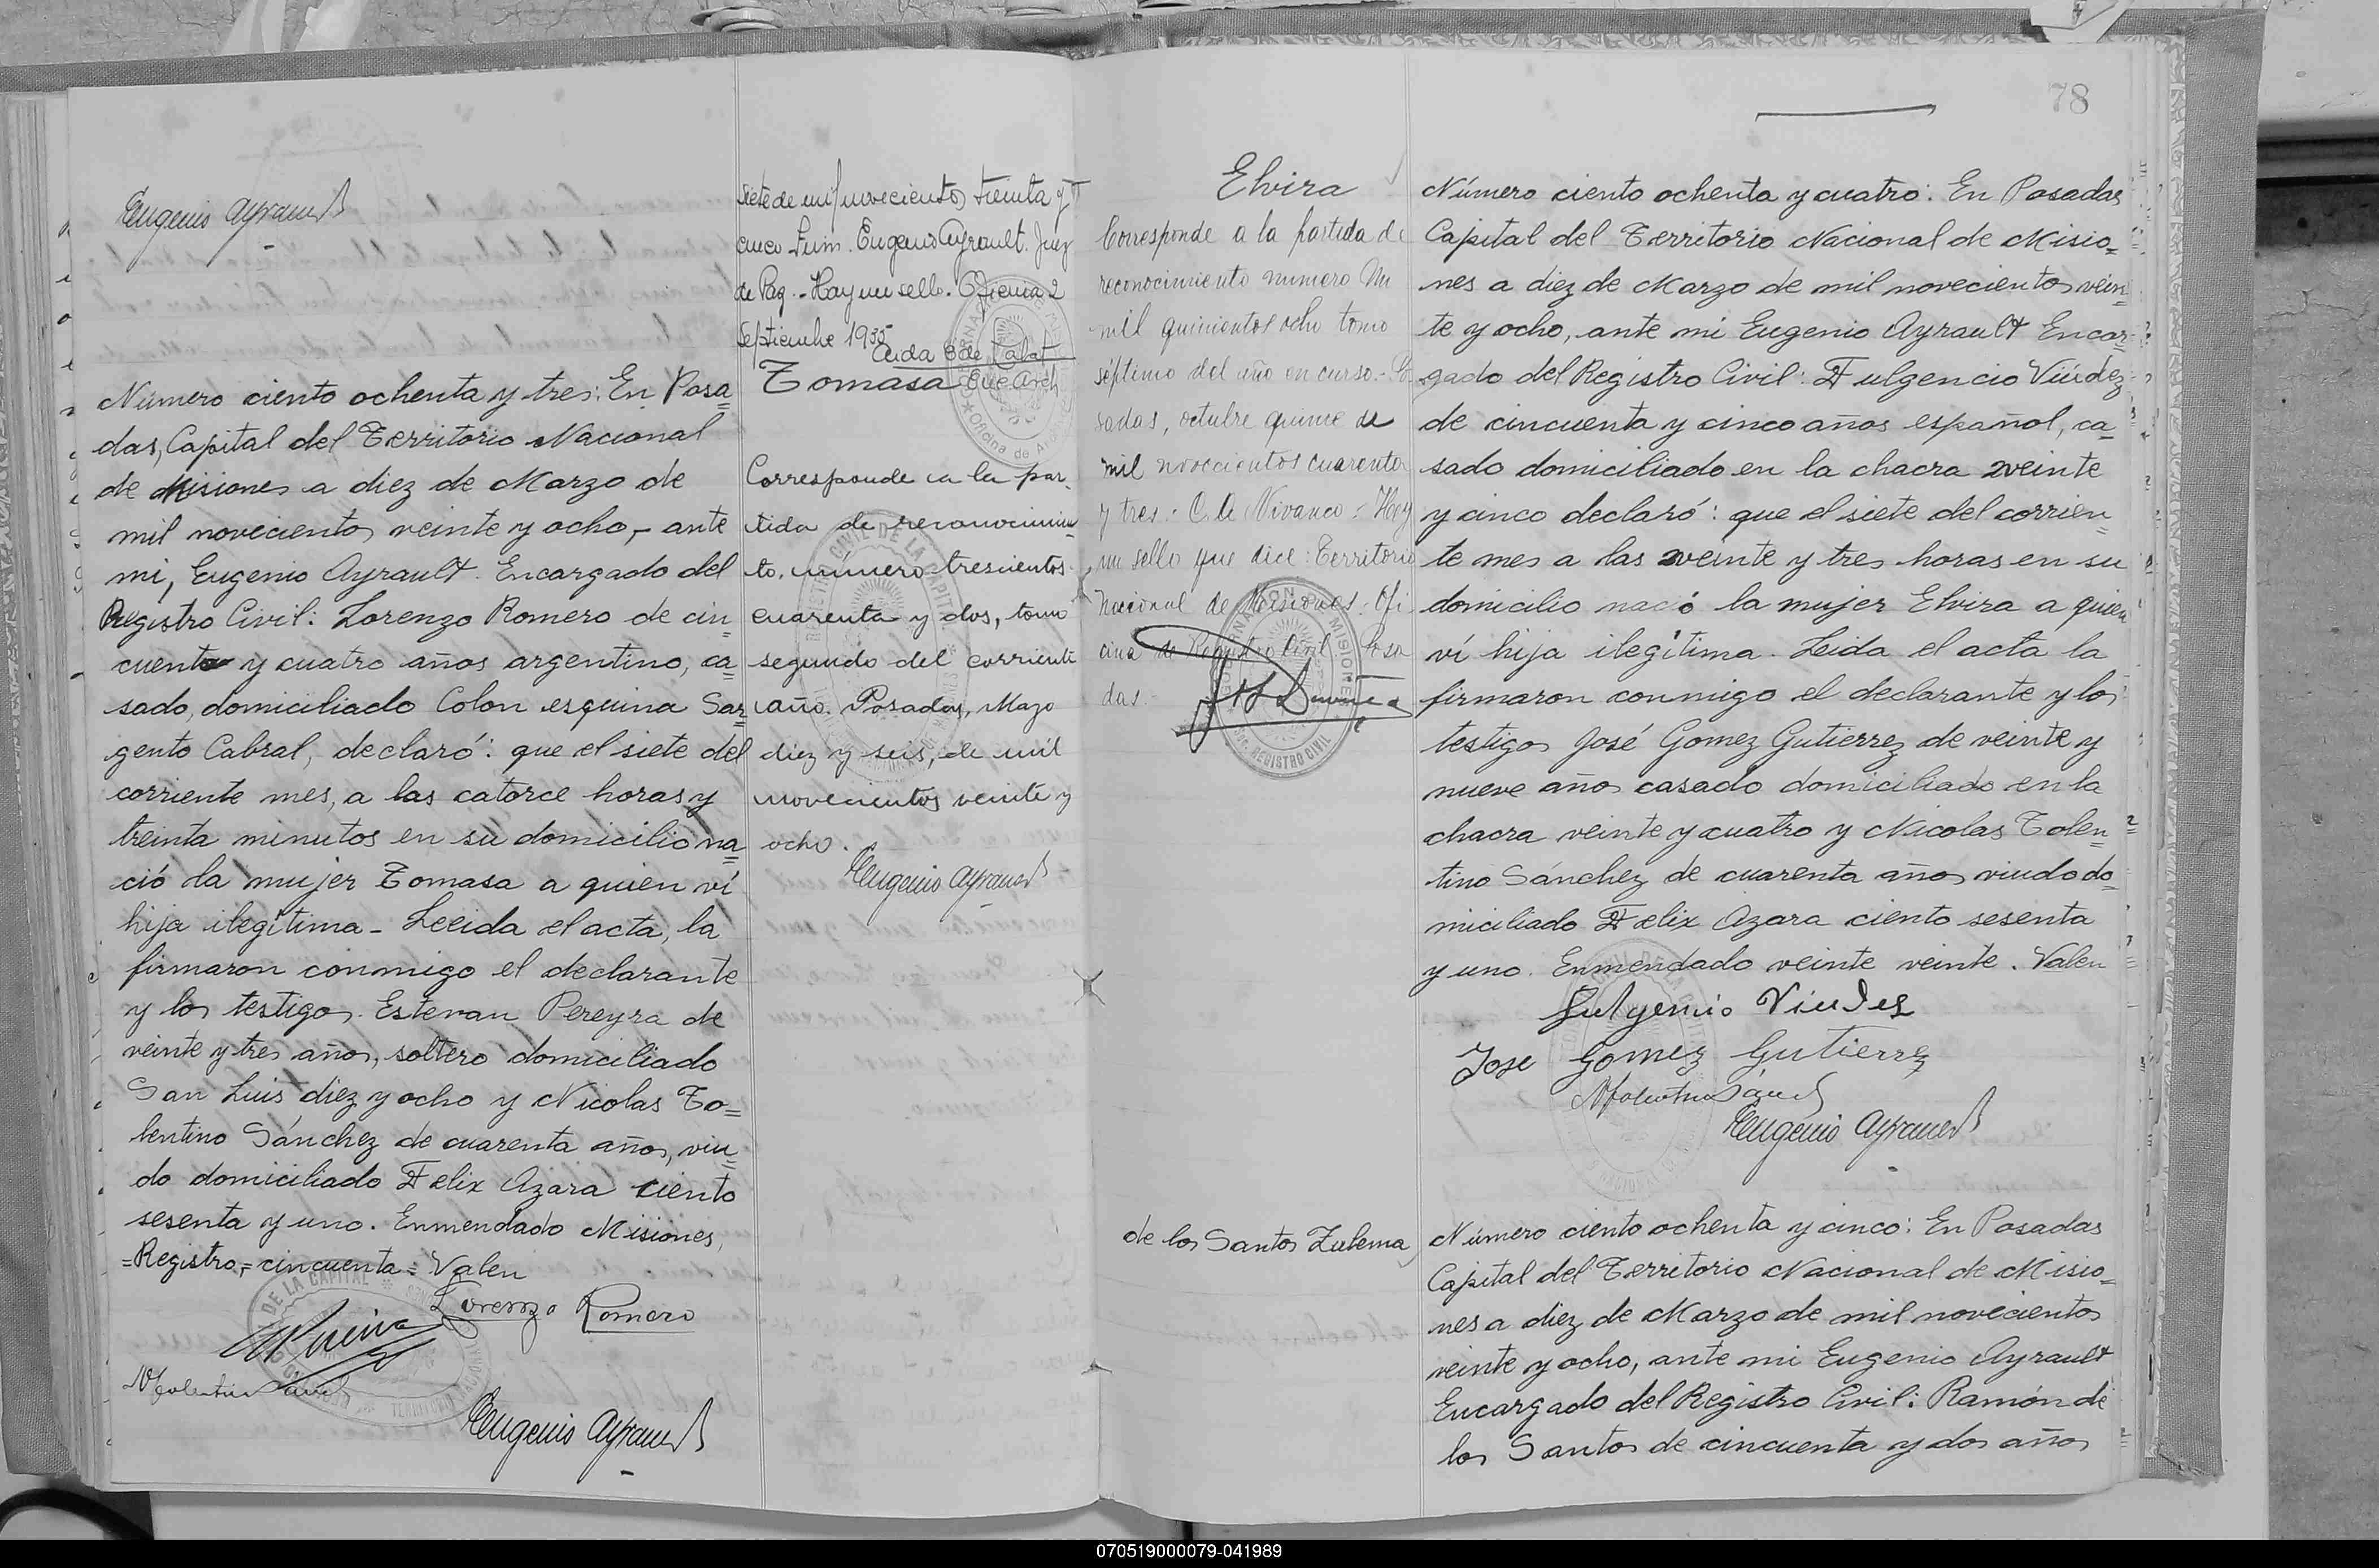 Eugenio Ayrault
Número ciento ochenta y tres: En Posa=
das, Capital del Territorio Nacional
de Misiones a diez de Marzo de
mil novecientos veinte y ocho,- ante
mi, Eugenio Ayrault. Encargado del
Registro Civil: Lorenzo Romero de cin=
cuenta y cuatro años argentino, ca=
sado, domiciliado Colon esquina Sar=
gento Cabral, declaró: que el siete del
corriente mes, a las catorce horas y
treinta minutos en su domicilio na=
ció la mujer Tomasa a quien ví
hija ilegítima - Leeida el acta, la
firmaron conmigo el declarante
y los testigos. Estevan Pereyra de
veinte y tres años, soltero domiciliado
San Luis diez y ocho y Nicolas To=
lentino Sánchez de cuarenta años, viu=
do domiciliado Felix Azara ciento
sesenta y uno. Enmendado Misiones,
=Registro,=cincuenta= Valen
Lorenzo Romero
Eugenio Ayrault
siete de mil novecientos treinta y
cinco. Firm. Eugenio Ayrault. Juez
de Paz.- Hay un sello. Oficina 2
Septiembre 1935
Tomasa
Corresponde a la par=
tida de reconocimien=
to, número trescientos
cuarenta y dos, tomo
segundo del corriente
año. Posadas, Mayo
diez y seis, de mil
novecientos veinte y
ocho.
Eugenio Ayrault
78
Elvira
Corresponde a la partida de
reconocimiento numero
mil quinientos ocho tomo
séptimo del año en curso.- Po
sadas, octubre quince de
mil novecientos cuarenta
y tres.- C. de Vivanco - Hay
un sello que dice: Territorio
Nacional de Misiones. Ofi
cina de Registro Civil Posa
das.
Número ciento ochenta y cuatro: En Posadas
Capital del Territorio Nacional de Misio=
nes a diez de Marzo de mil novecientos vein=
te y ocho, ante mi Eugenio Ayrault Encar=
gado del Registro Civil: Fulgencio Viúdez
de cincuenta y cinco años español, ca=
sado domiciliado en la chacra veinte
y cinco declaró: que el siete del corrien=
te mes a las veinte y tres horas en su
domicilio nació la mujer Elvira a quien
ví hija ilegítima. Leida el acta la
firmaron conmigo el declarante y los
testigos José Gomez Gutierrez de veinte y
nueve años casado domiciliado en la
chacra veinte y cuatro y Nicolas Tolen=
tino Sánchez de cuarenta años viudo do=
miciliado Felix Azara ciento sesenta
y uno. Enmendado veinte veinte. Valen
Fulgencio Viudez
Jose Gomez Gutierrez
Eugenio Ayrault
de los Santos Zulema
Número ciento ochenta y cinco: En Posadas
Capital del Territorio Nacional de Misio=
nes a diez de Marzo de mil novecientos
veinte y ocho, ante mi Eugenio Ayrault
Encargado del Registro Civil: Ramón de
los Santos de cincuenta y dos años
070519000079-041989